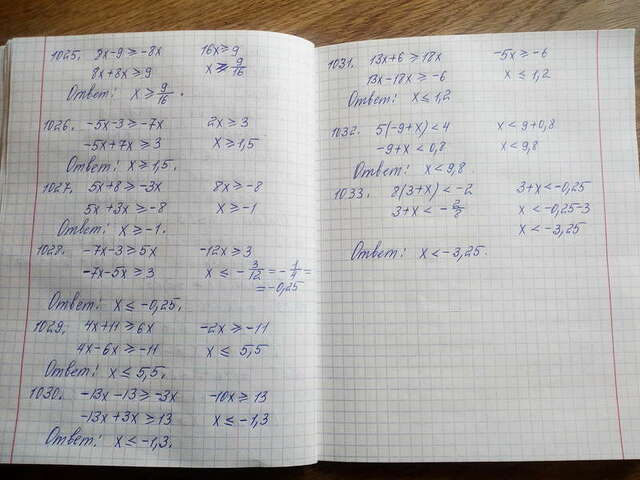 1025. 8x-9 ≥ -8x 16x ≥ 9
8x+8x ≥ 9 x ≥ 9/16
Ответ: x ≥ 9/16.
1026. -5x-3 ≥ -7x 2x ≥ 3
-5x+7x ≥ 3 x ≥ 1,5
Ответ: x ≥ 1,5.
1027. 5x+8 ≥ -3x 8x ≥ -8
5x+3x ≥ -8 x ≥ -1
Ответ: x ≥ -1.
1028. -7x-3 ≥ 5x -12x ≥ 3
-7x-5x ≥ 3 x ≤ -3/12 = -1/4 =
= -0,25
Ответ: x ≤ -0,25.
1029. 4x+11 ≥ 6x -2x ≥ -11
4x-6x ≥ -11 x ≤ 5,5
Ответ: x ≤ 5,5.
1030. -13x-13 ≥ -3x -10x ≥ 13
-13x+3x ≥ 13 x ≤ -1,3
Ответ: x ≤ -1,3.
1031. 13x+6 ≥ 18x -5x ≥ -6
13x-18x ≥ -6 x ≤ 1,2
Ответ: x ≤ 1,2
1032. 5(-9+x) < 4 x < 9+0,8
-9+x < 0,8 x < 9,8
Ответ: x < 9,8
1033. 8(3+x) < -2 3+x < -0,25
3+x < -2/8 x < -0,25-3
x < -3,25
Ответ: x < -3,25.